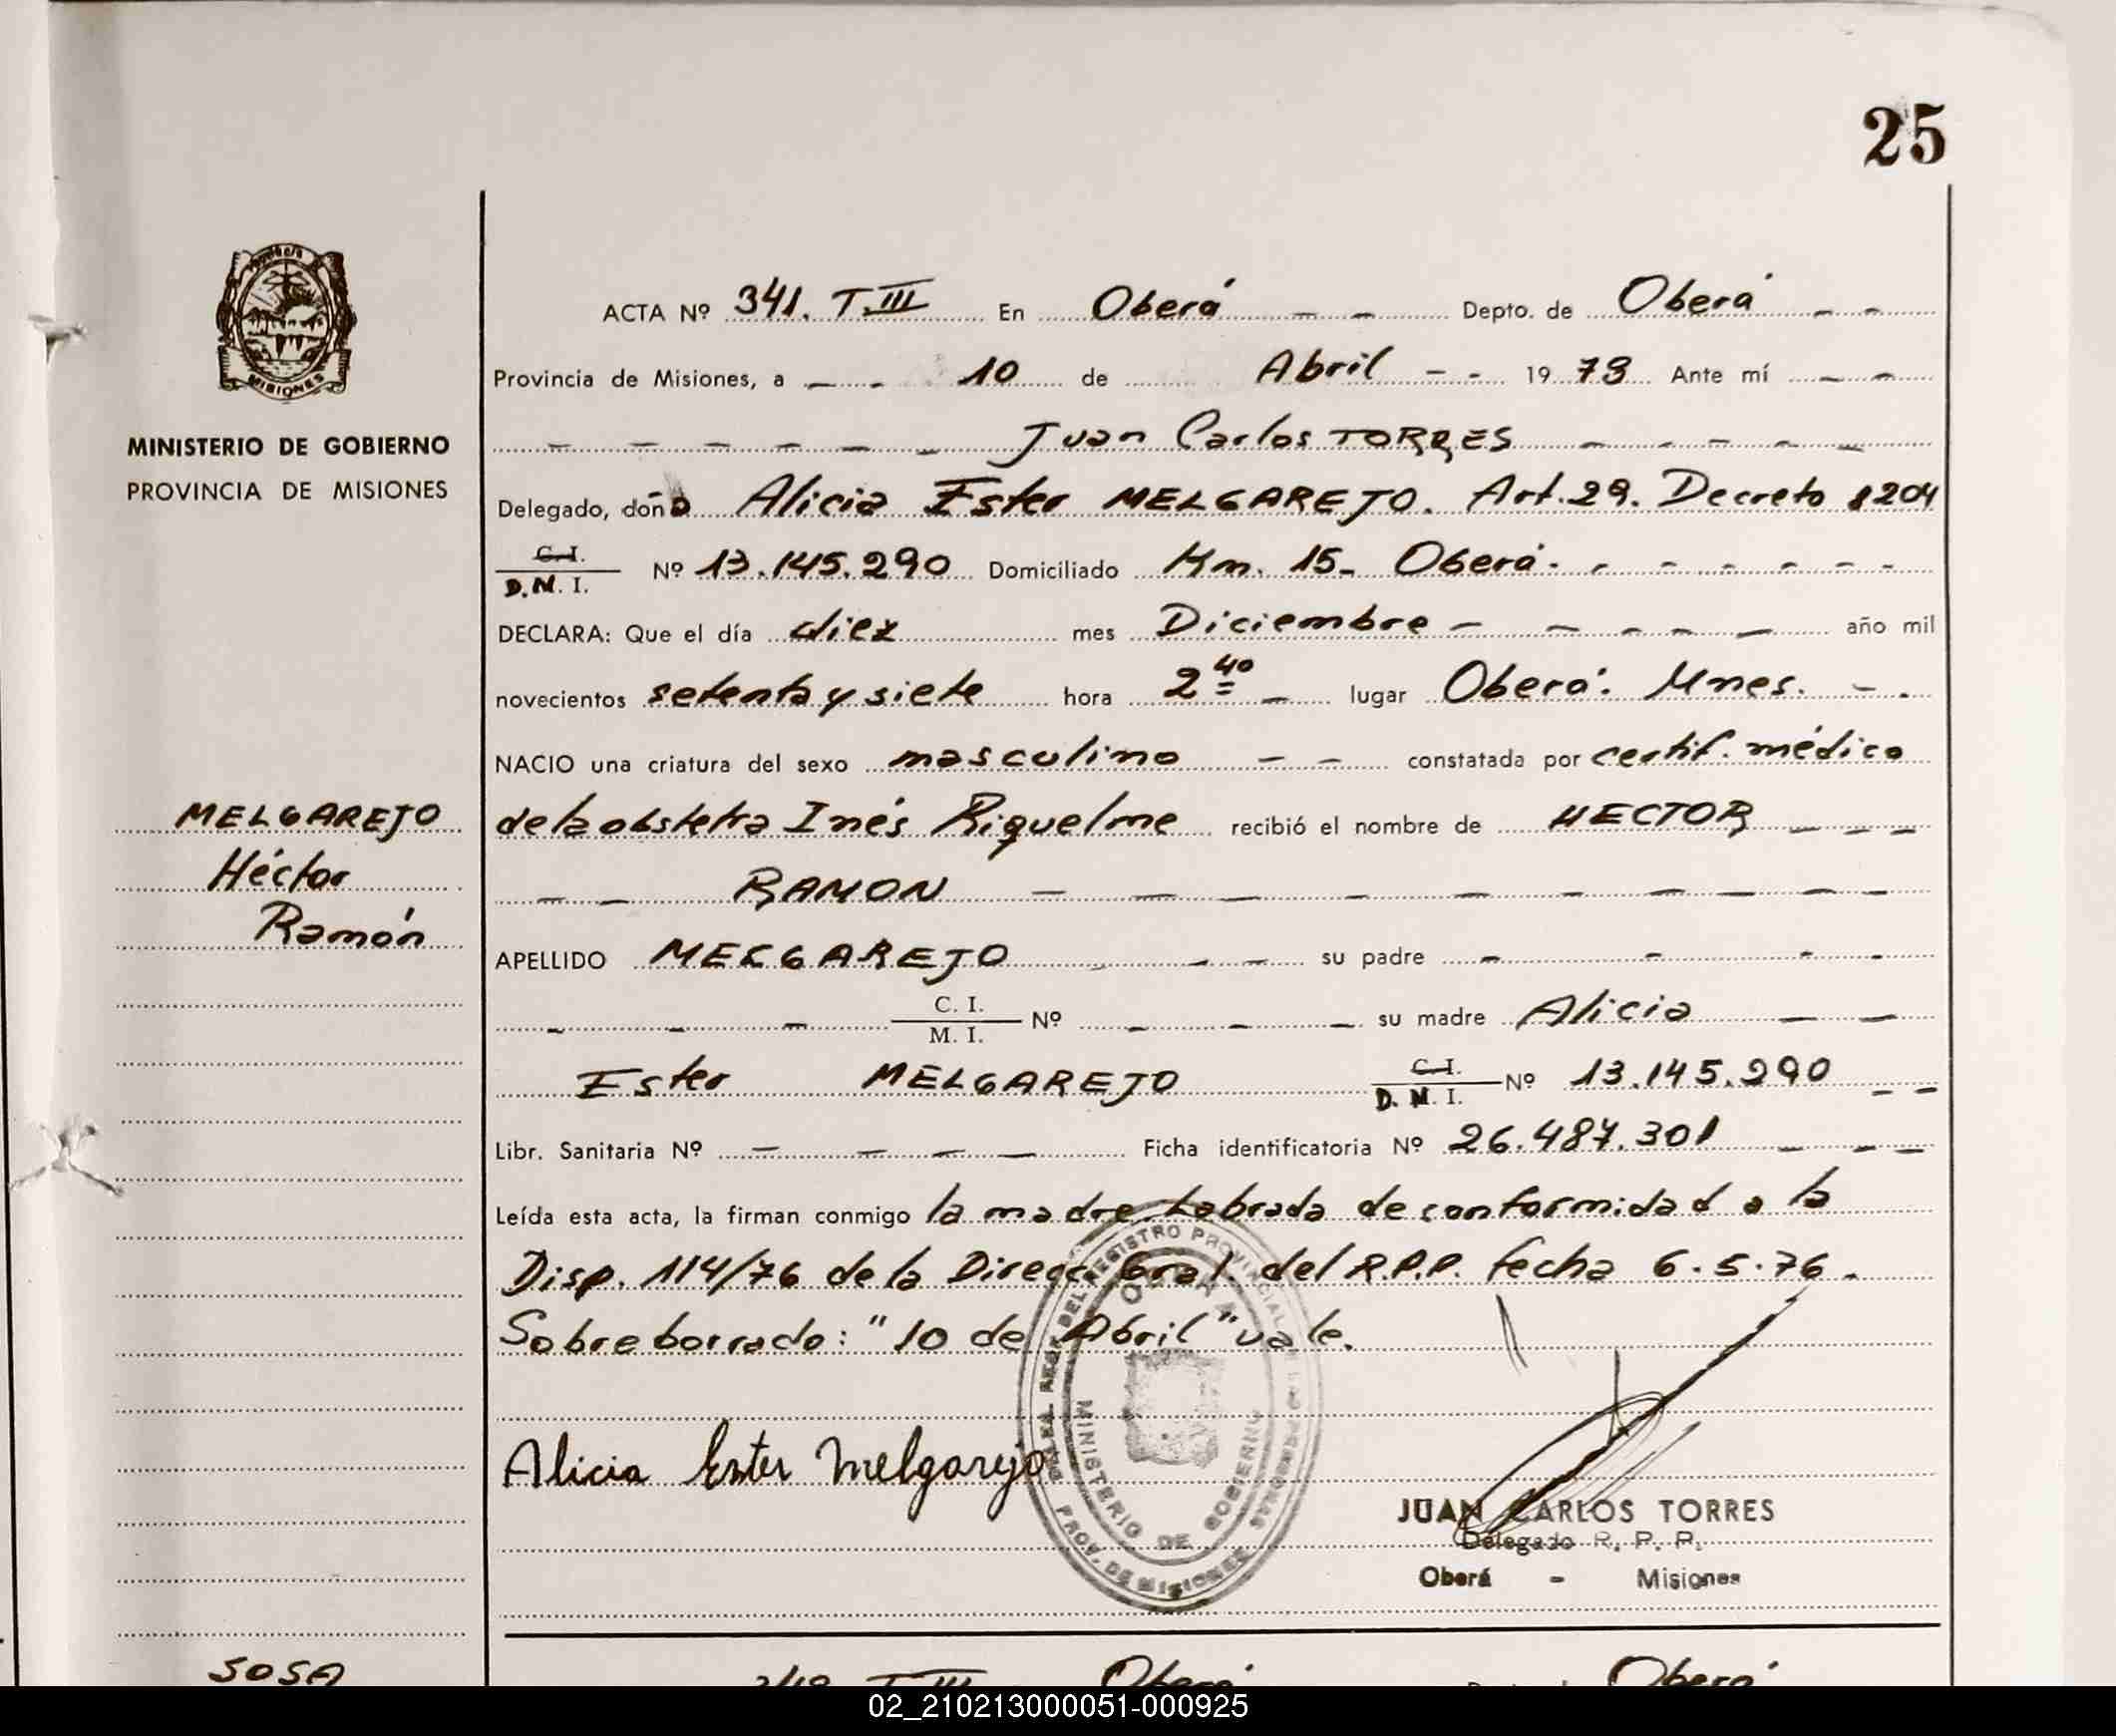 25
MISIONES
MINISTERIO DE GOBIERNO
PROVINCIA DE MISIONES
ACTA Nº 341. T.III En Oberá Depto. de Oberá
Provincia de Misiones, a 10 de Abril 1978 Ante mí
Juan Carlos TORRES
Delegado, doña Alicia Ester MELGAREJO. Art. 29. Decreto 8204
C. I.
D. N. I. Nº 13.145.290 Domiciliado Km. 15 - Oberá.
DECLARA: Que el día diez mes Diciembre año mil
novecientos setenta y siete hora 2 40 lugar Oberá. Mnes.
NACIO una criatura del sexo masculino constatada por certif. médico
MELGAREJO
de la obstetra Inés Riquelme recibió el nombre de HECTOR
Héctor
RAMON
Ramón
APELLIDO MELGAREJO su padre
C. I.
M. I. Nº su madre Alicia
Ester MELGAREJO C. I.
D. N. I. Nº 13.145.290
Libr. Sanitaria Nº Ficha identificatoria Nº 26.487.301
Leída esta acta, la firman conmigo la madre. Labrada de conformidad a la
Disp. 114/76 de la Direcc. Gral. del R.P.P. fecha 6.5.76.
Sobreborrado: "10 de Abril" vale.
Alicia Ester Melgarejo
REGISTRO PROVINCIAL DE LAS PERSONAS
MINISTERIO DE GOBIERNO
PROV. DE MISIONES
JUAN CARLOS TORRES
Delegado R. P. P.
Oberá - Misiones
SOSA
T.III Oberá Oberá
02_210213000051-000925